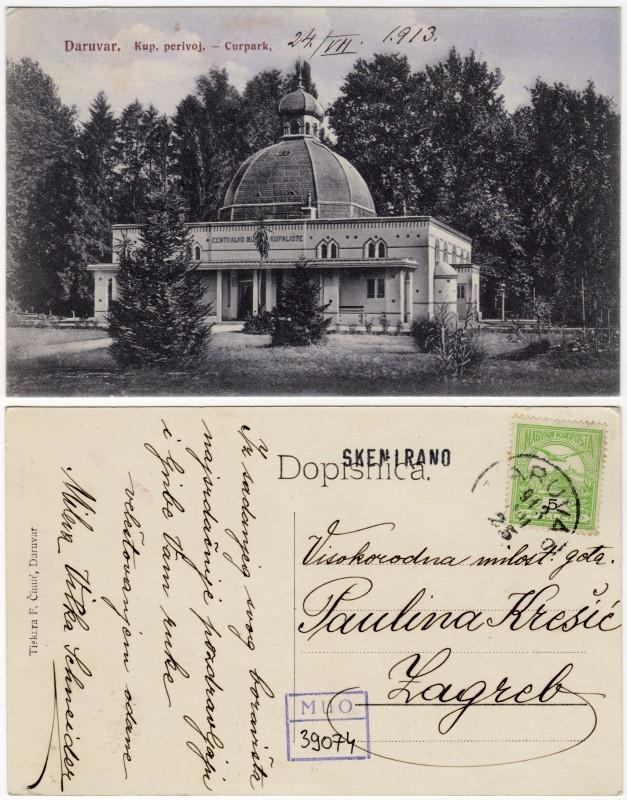 Daruvar. Kup. perivoj. – Curpark.
24./VII. 1913.
CENTRALNO KUPALISTE
Dopisnica.
SKENIRANO
MAGYAR KIR. POSTA
5
DARUVAR
913
25
Visokorodna milost. gđa.
Paulina Krešić
Zagreb
MUO
39074
Iz sadanjeg svog boravišta
najsrdačnije pozdravljaju
i ljube Vam ruke
veleštovanjem odane
Milena Vilka Schneider
Tiskara F. Činić, Daruvar